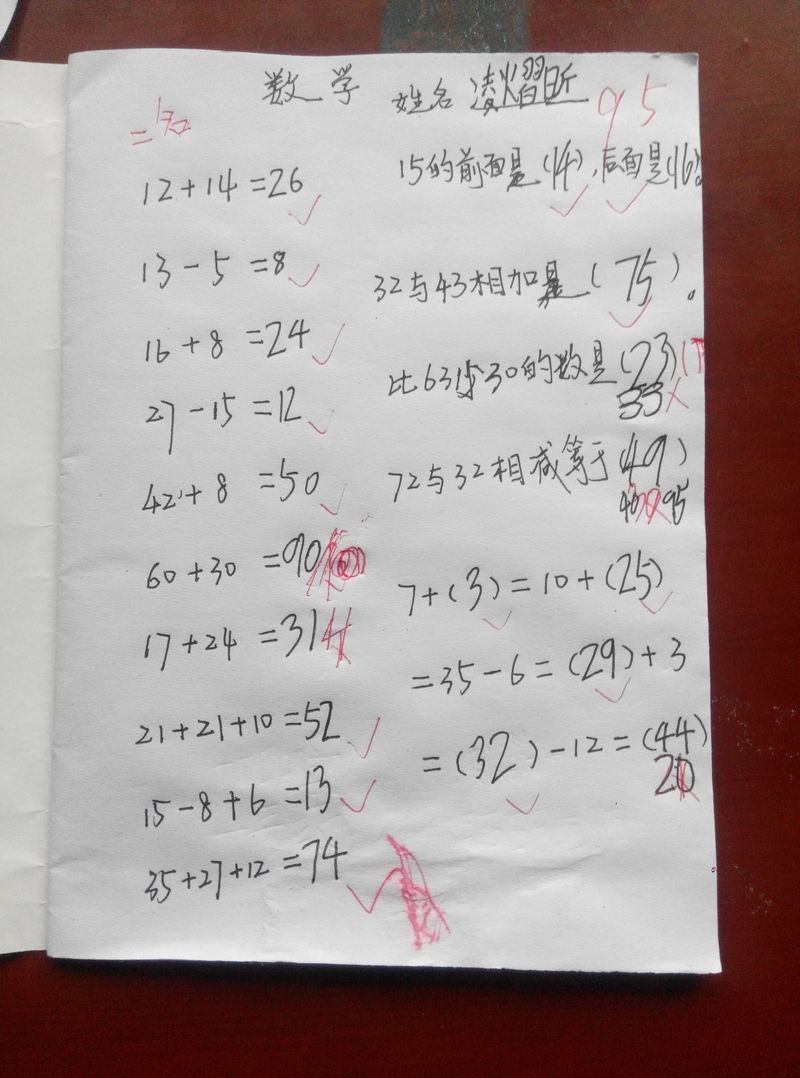 数学 姓名 凌熠昕 95
12+14=26
13-5=8
16+8=24
27-15=12
42+8=50
60+30=90
17+24=31
21+21+10=52
15-8+6=13
35+27+12=74
15的前面是(14),后面是(16)。
32与43相加是(75)。
比63少30的数是(23)
33
72与32相减等于(49)
40
7+(3)=10+(25)
=35-6=(29)+3
=(32)-12=(44)
20